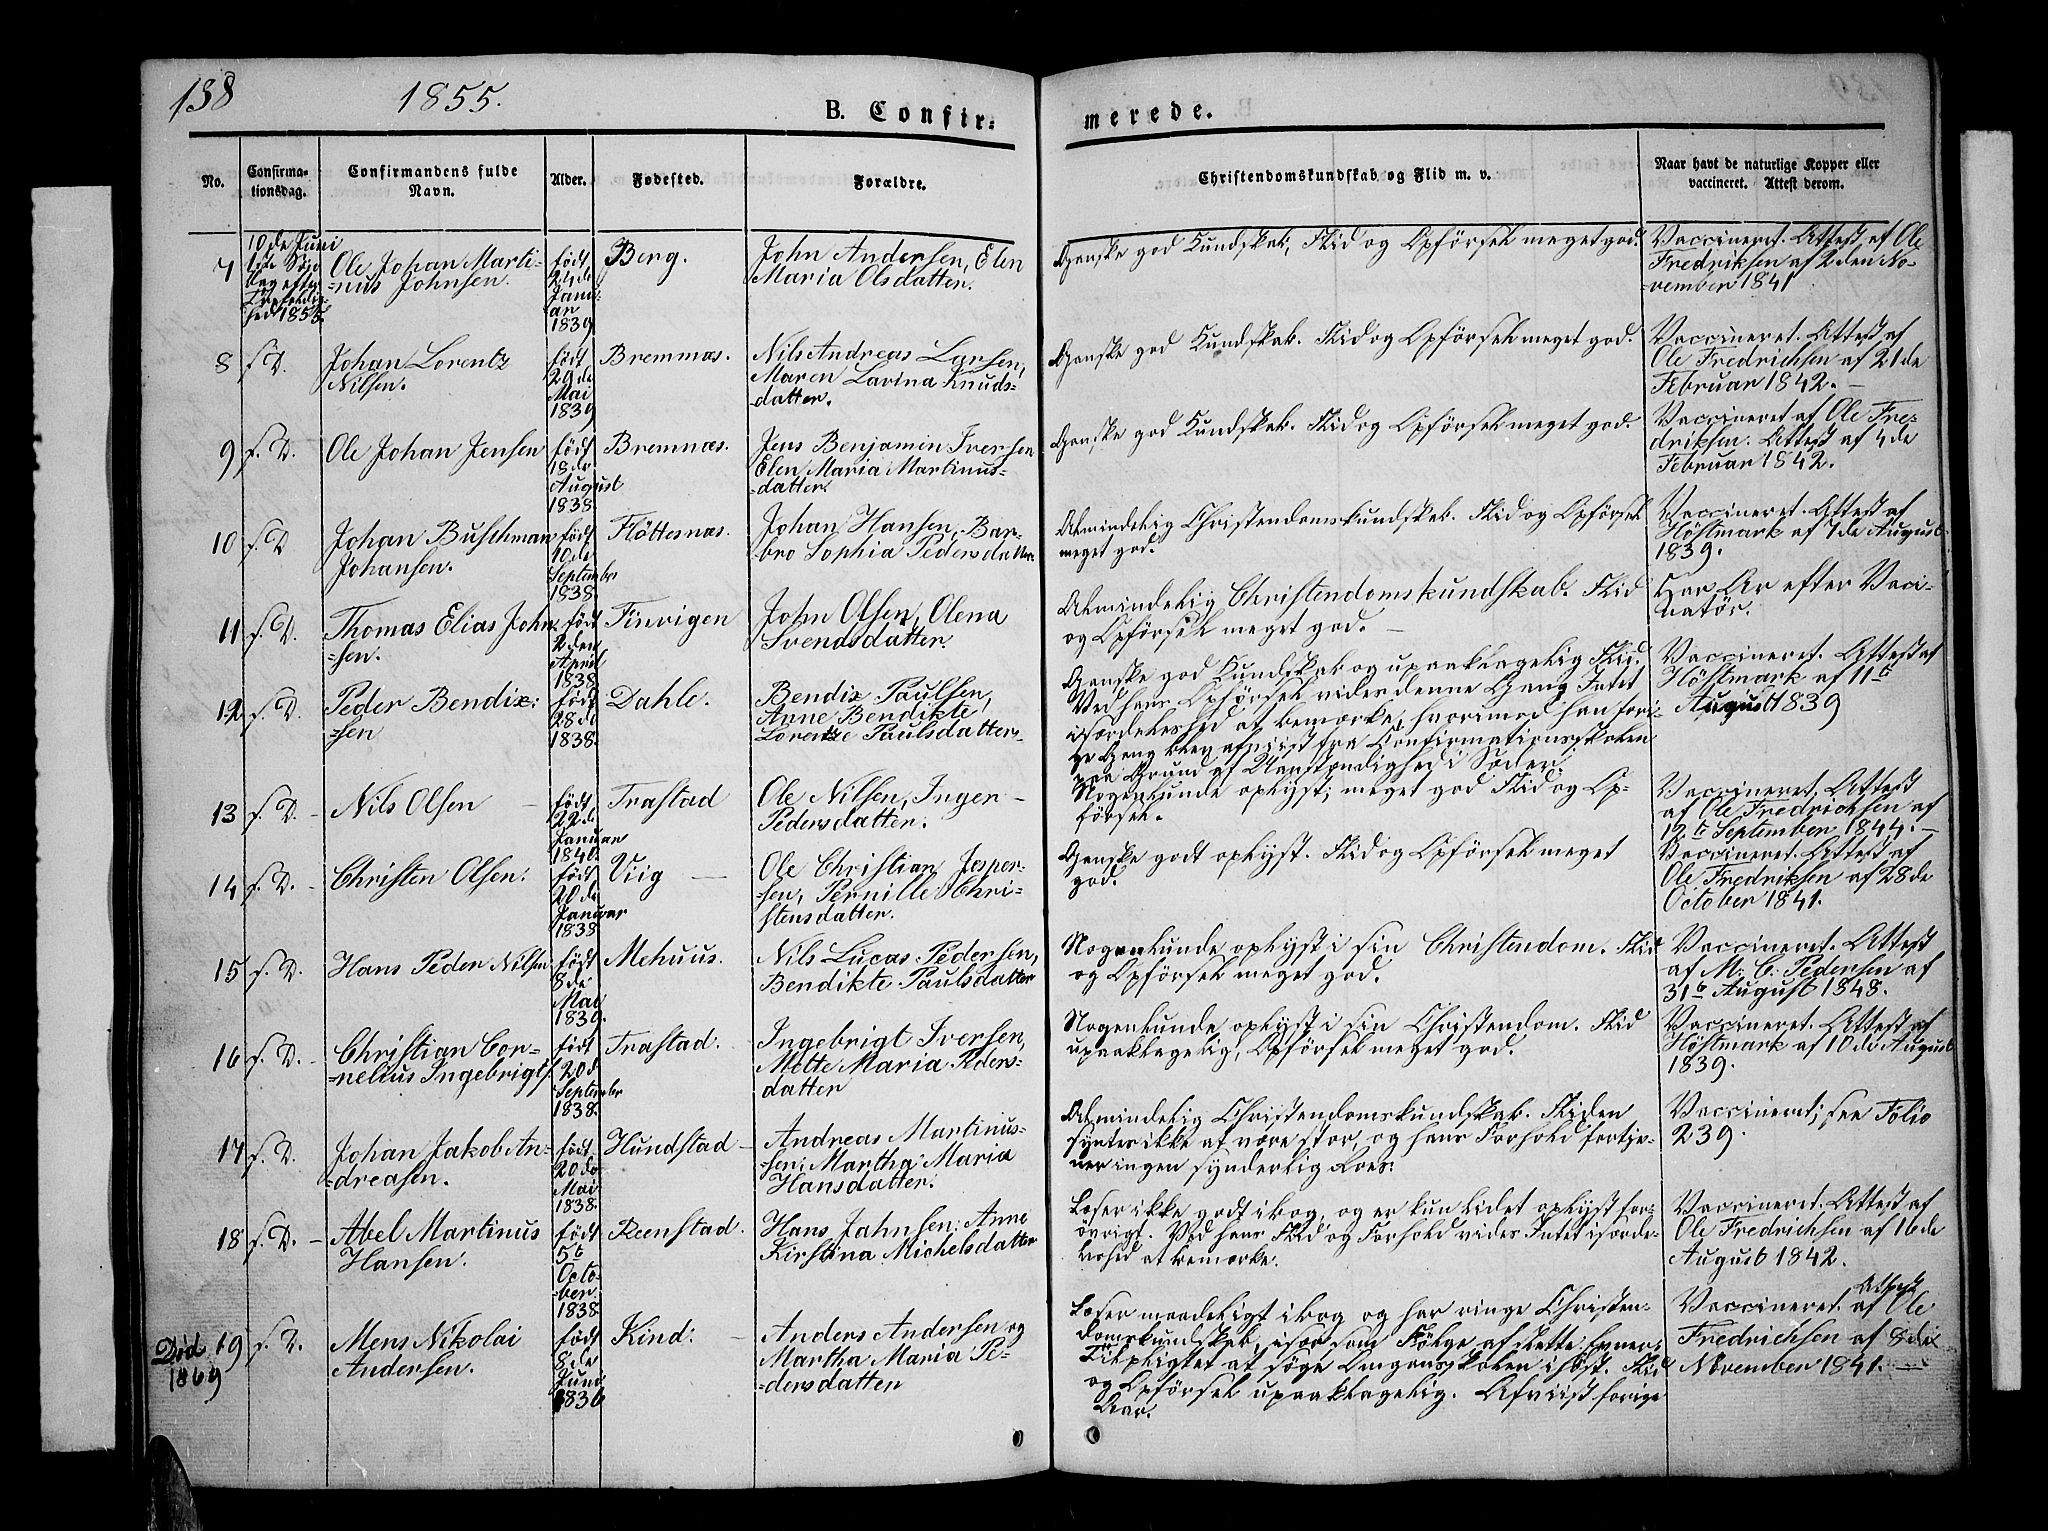 138
1855.
B. Confir=
merede.
No.
Confirma-
tionsdag.
Confirmandens fulde
Navn.
Alder.
Fødested.
Forældre.
Christendomskundskab og Flid m. v.
Naar havt de naturlige Kopper eller
vaccineret. Attest derom.
7
10de Juni
1ste Søn-
dag efter
Trefoldig-
hed 1855.
Ole Johan Marti-
=nus Johnsen.
født
24de
Janu-
ar
1839
Berg.
John Andersen, Elen
Maria Olsdatter.
Ganske god Kundskab, Flid og Opførsel meget god.
Vaccineret. Attest af Ole
Fredriksen af 2den No-
=vember 1841
8
f. D.
Johan Lorentz
Nilsen.
født
29de
Mai
1839
Bremnæs.
Nils Andreas Larsen,
Maren Lavina Knuds-
=datter.
Ganske god Kundskab. Flid og Opførsel meget god.
Vaccineret. Attest af
Ole Fredrichsen af 21de
Februar 1842. —
9
f. D.
Ole Johan Jensen
født
18de
August
1838.
Bremnæs.
Jens Benjamin Iversen
Elen Maria Martinus-
=datter.
Ganske god Kundskab. Flid og Opførsel meget god.
Vaccineret af Ole Fre-
driksen. Attest af 4de
Februar 1842.
10
f. D
Johan Buschman
Johansen.
født
10de
September
1838.
Fløttesnæs.
Johan Hansen, Bar-
bro Sophia Pedersdatter
Almindelig Christendomskundskab. Flid og Opførsel
meget god.
Vaccineret. Attest af
Høstmark af 7de August
1839.
11
f. D.
Thomas Elias John-
=sen.
født
2den
April
1838.
Finvigen
John Olsen, Olena
Svendsdatter.
Almindelig Christendomskundskab. Flid
og Opførsel meget god. —
Har Ar efter Vacci-
natør.
12
f. D.
Peder Bendix=
=sen
født
28de
1838.
Dahle.
Bendix Paulsen,
Anne Bendikte
Lorentze Paulsdatter.
Ganske god Kundskab og upaaklagelig Flid.
Ved hans Opførsel vides denne Gang Intet
isærdeleshed at bemærke, hvorimod han fori-
ge Gang blev afviist fra Confirmationsskolen
paa Grund af Uanstændighed i Sæder.
Vaccineret. Attest af
Høstmark af 11te
August 1839
13
f. D. -
Nils Olsen —
født
22de
Januar
1840.
Trastad
Ole Nilsen, Inger —
Pedersdatter.
Nogenlunde oplyst; meget god Flid og Op-
førsel.
Vaccineret, Attest
af Ole Fredrichsen af
12te September 1844. —
14
f. D. -
Christen Olsen.
født
20de
Januar
1838
Viig —
Ole Christian Jesper-
=sen, Pernille Chri-
stensdatter.
Ganske godt oplyst. Flid og Opførsel meget
god.
Vaccineret. Attest af
Ole Fredriksen af 28de
October 1841.
15
f. D.
Hans Peder Nilsen
født
8de
Mai
1839.
Mehuus.
Nils Lucas Pedersen,
Bendikte Paulsdatter
Nogenlunde oplyst i sin Christendom. Flid
og Opførsel meget god.
Vaccineret. Attest
af M. C. Pedersen af
31te August 1848.
16
f. D. -
Christian Cor-
=nelius Ingebrigts.
født
20de
September
1838.
Trastad.
Ingebrigt Iversen,
Mette Maria Peders-
datter
Nogenlunde oplyst i sin Christendom. Flid
upaaklagelig, Opførsel meget god.
Vaccineret. Attest af
Høstmark af 10de August
1839.
17
f. D.
Johan Jakob An-
=dreasen.
født
20de
Mai
1838.
Hundstad —
Andreas Martinus-
sen; Martha Maria
Hansdatter.
Almindelig Christendomskundskab. Fliden
syntes ikke at være stor, og hans Forhold fortje-
ner ingen synderlig Roes.
Vaccineret; see Folio
239.
18
f. D. -
Abel Martinus
Hansen.
født
5te
Octo-
ber
1838
Reenstad.
Hans Jahnsen; Anne
Kirstina Michelsdatter
Læser ikke godt i bog, og er kun lidet oplyst for-
øvrigt. Ved hans Flid og Forhold vides Intet isærde-
leshed at bemærke.
Vaccineret. Attest af
Ole Fredrichsen af 16de
August 1842.
Død
1869
19
f. D.
Mens Nikolai
Andersen.
født
8de
Juni
1836
Kind. —
Anders Andersen og
Martha Maria Pe-
=dersdatter
Læser maadeligt i bog og har ringe Christen-
domskundskab, især som Følge af slette Evner.
Tilpligtet at søge Omgangsskolen i Høst. Flid
og Opførsel upaaklagelig. Afviist forige
Aar.
Vaccineret. Attest af Ole
Fredrichsen af 8de
November 1841. —